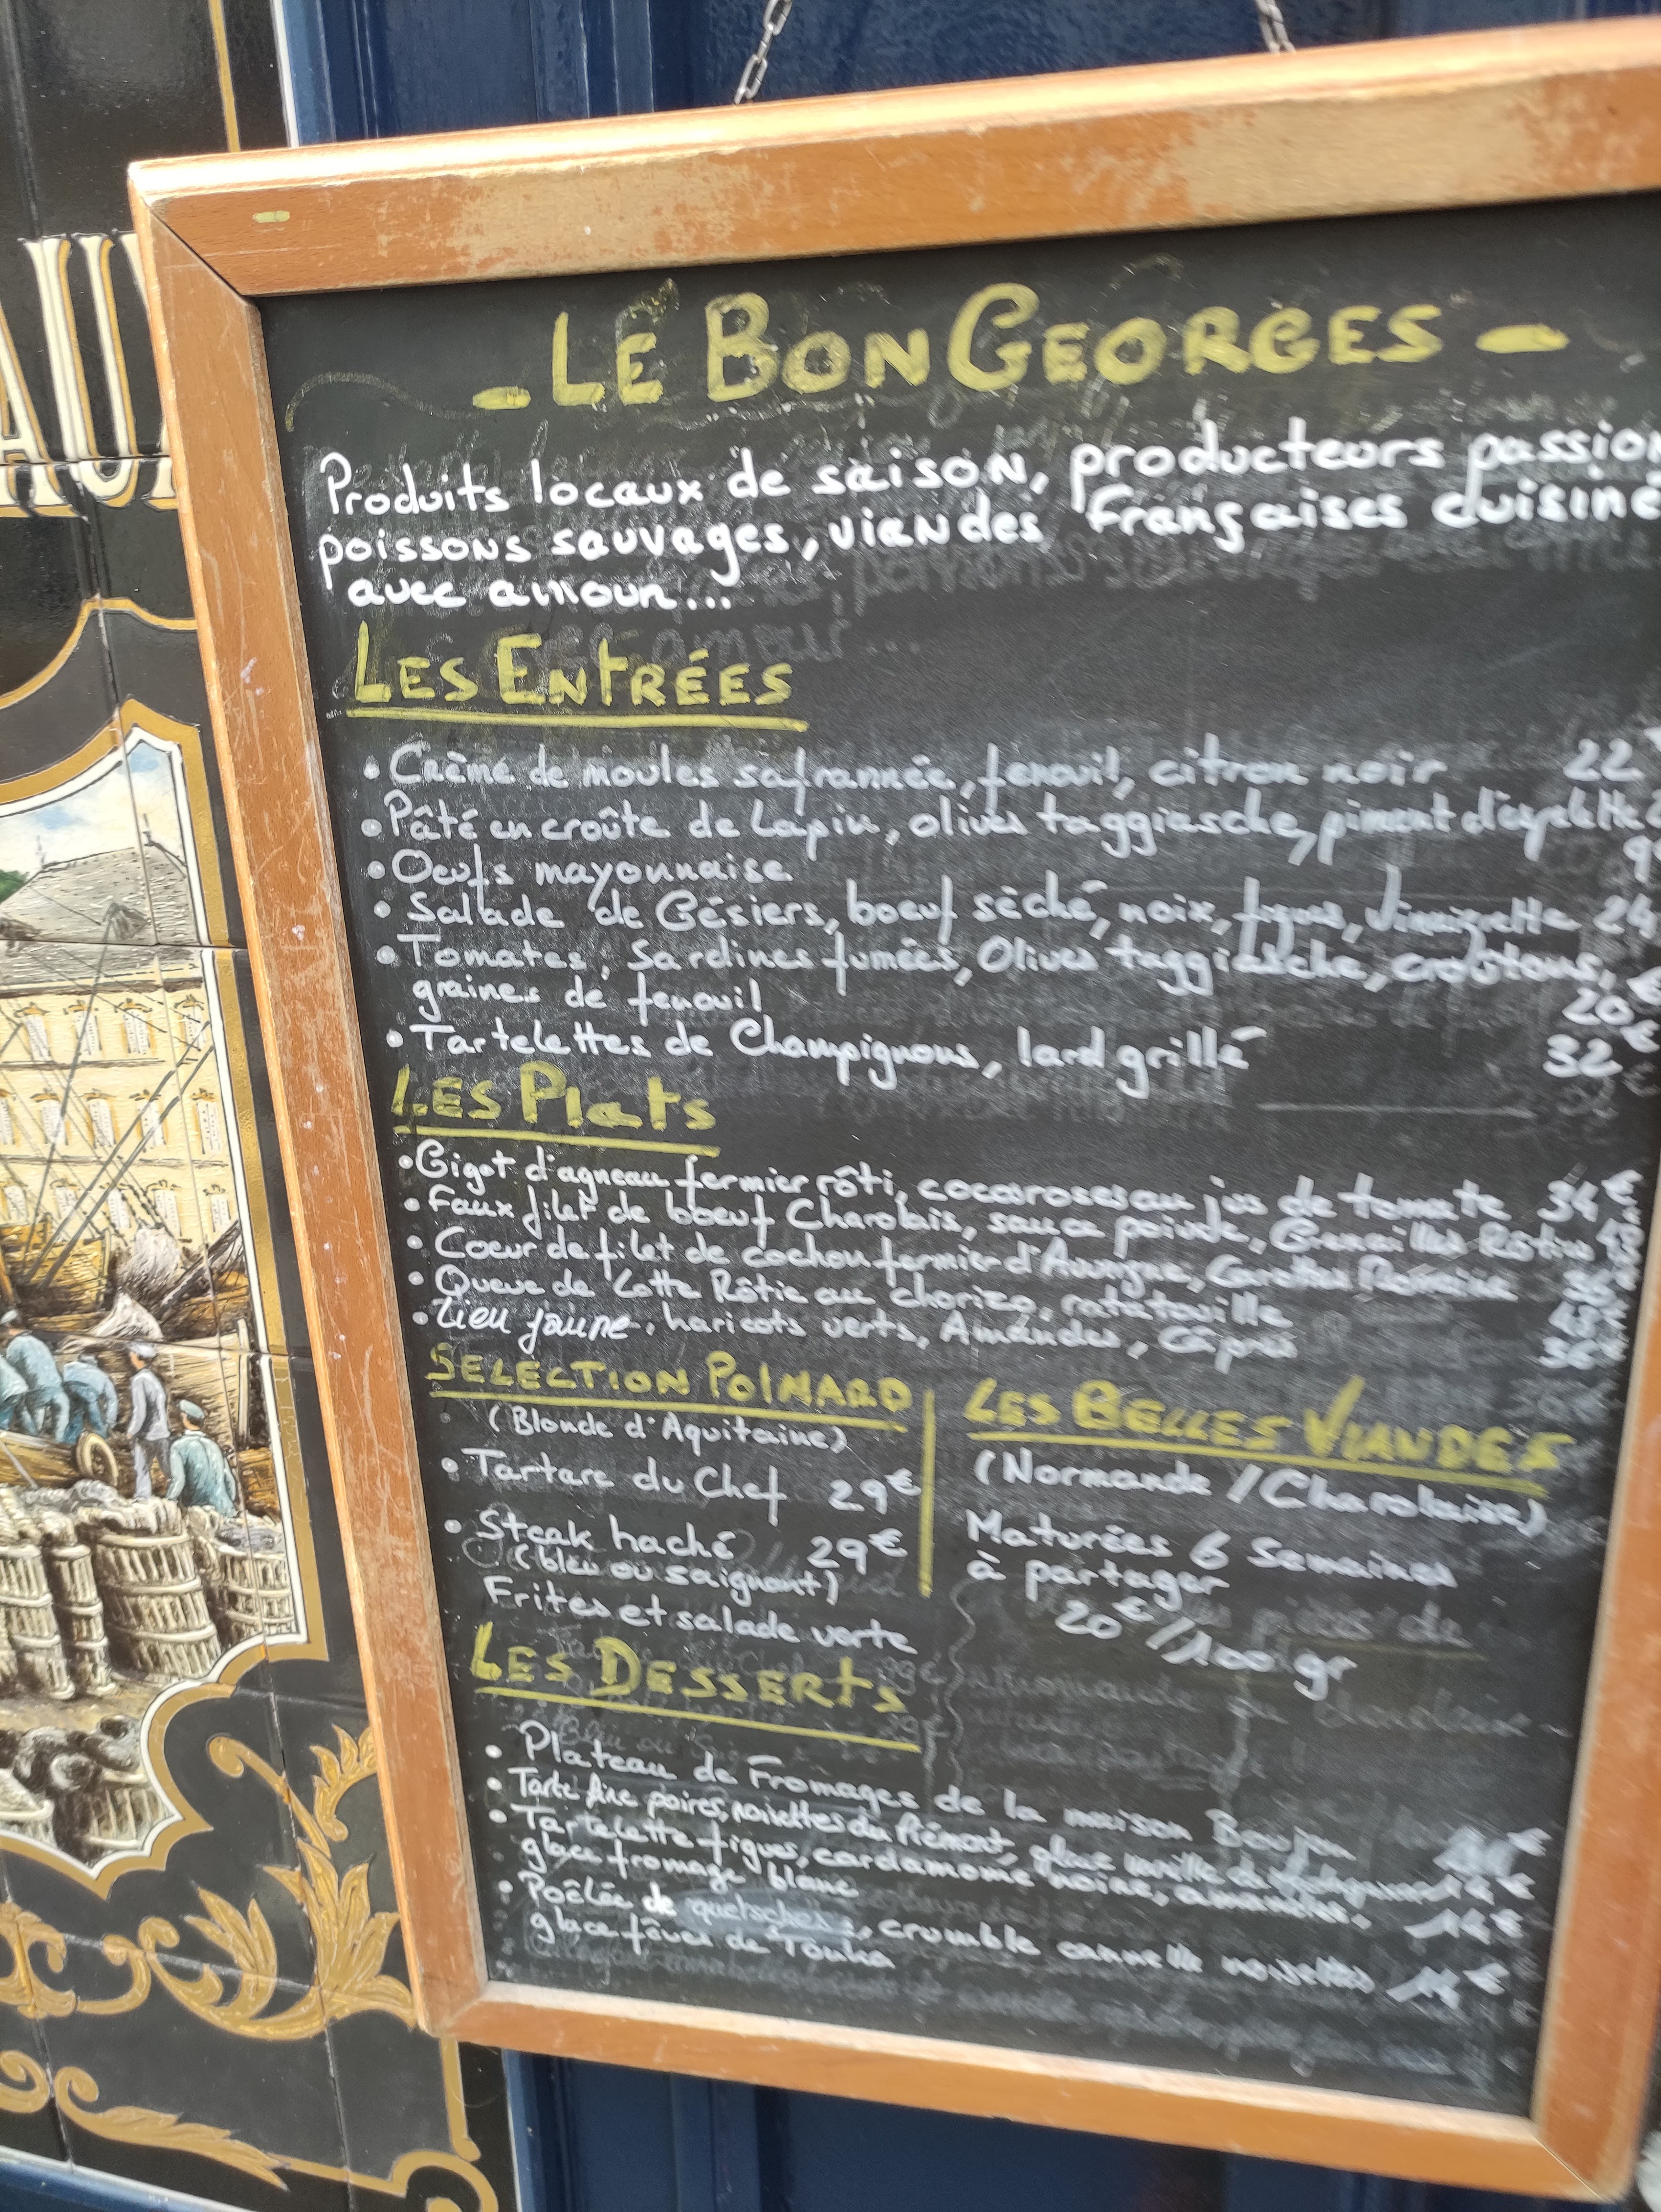 AU
- LE BON GEORGES -
Produits locaux de saison, producteurs passion
poissons sauvages, viandes Françaises cuisiné
avec amour...
LES ENTRÉES
• Crème de moules safrannée, fenouil, citron noir 22
• Pâté en croûte de Lapin, olives taggiasche, piment d'espelette
• Oeufs mayonnaise 9
• Salade de Gésiers, boeuf séché, noix, figues, Vinaigrette 24
• Tomates, Sardines fumées, Olives taggiasche, croûtons,
graines de fenouil 20€
• Tartelettes de Champignons, lard grillé 32€
LES Plats
• Gigot d'agneau fermier rôti, cocos roses au jus de tomate 34€
• Faux filet de boeuf Charolais, sauce poivre, Grenailles Rôties
• Coeur de filet de cochon fermier d'Auvergne, Carottes
• Queue de Lotte Rôtie au chorizo, ratatouille
• Lieu jaune, haricots verts, Amandes, Câpres
SELECTION POLMARD
(Blonde d'Aquitaine)
• Tartare du Chef 29€
• Steak haché 29€
(bleu ou saignant)
Frites et salade verte
LES BELLES VIANDES
(Normande / Charolaise)
Maturées 6 Semaines
à partager
20€/100gr
LES DESSERTS
• Plateau de Fromages de la maison
• Tarte fine poires, noisettes du Piémont, glace vanille de
• Tartelette figues, cardamome noire, amandes. 14€
glace fromage blanc
• Poêlée de quetsches, crumble cannelle noisettes 14€
glace fèves de Tonka